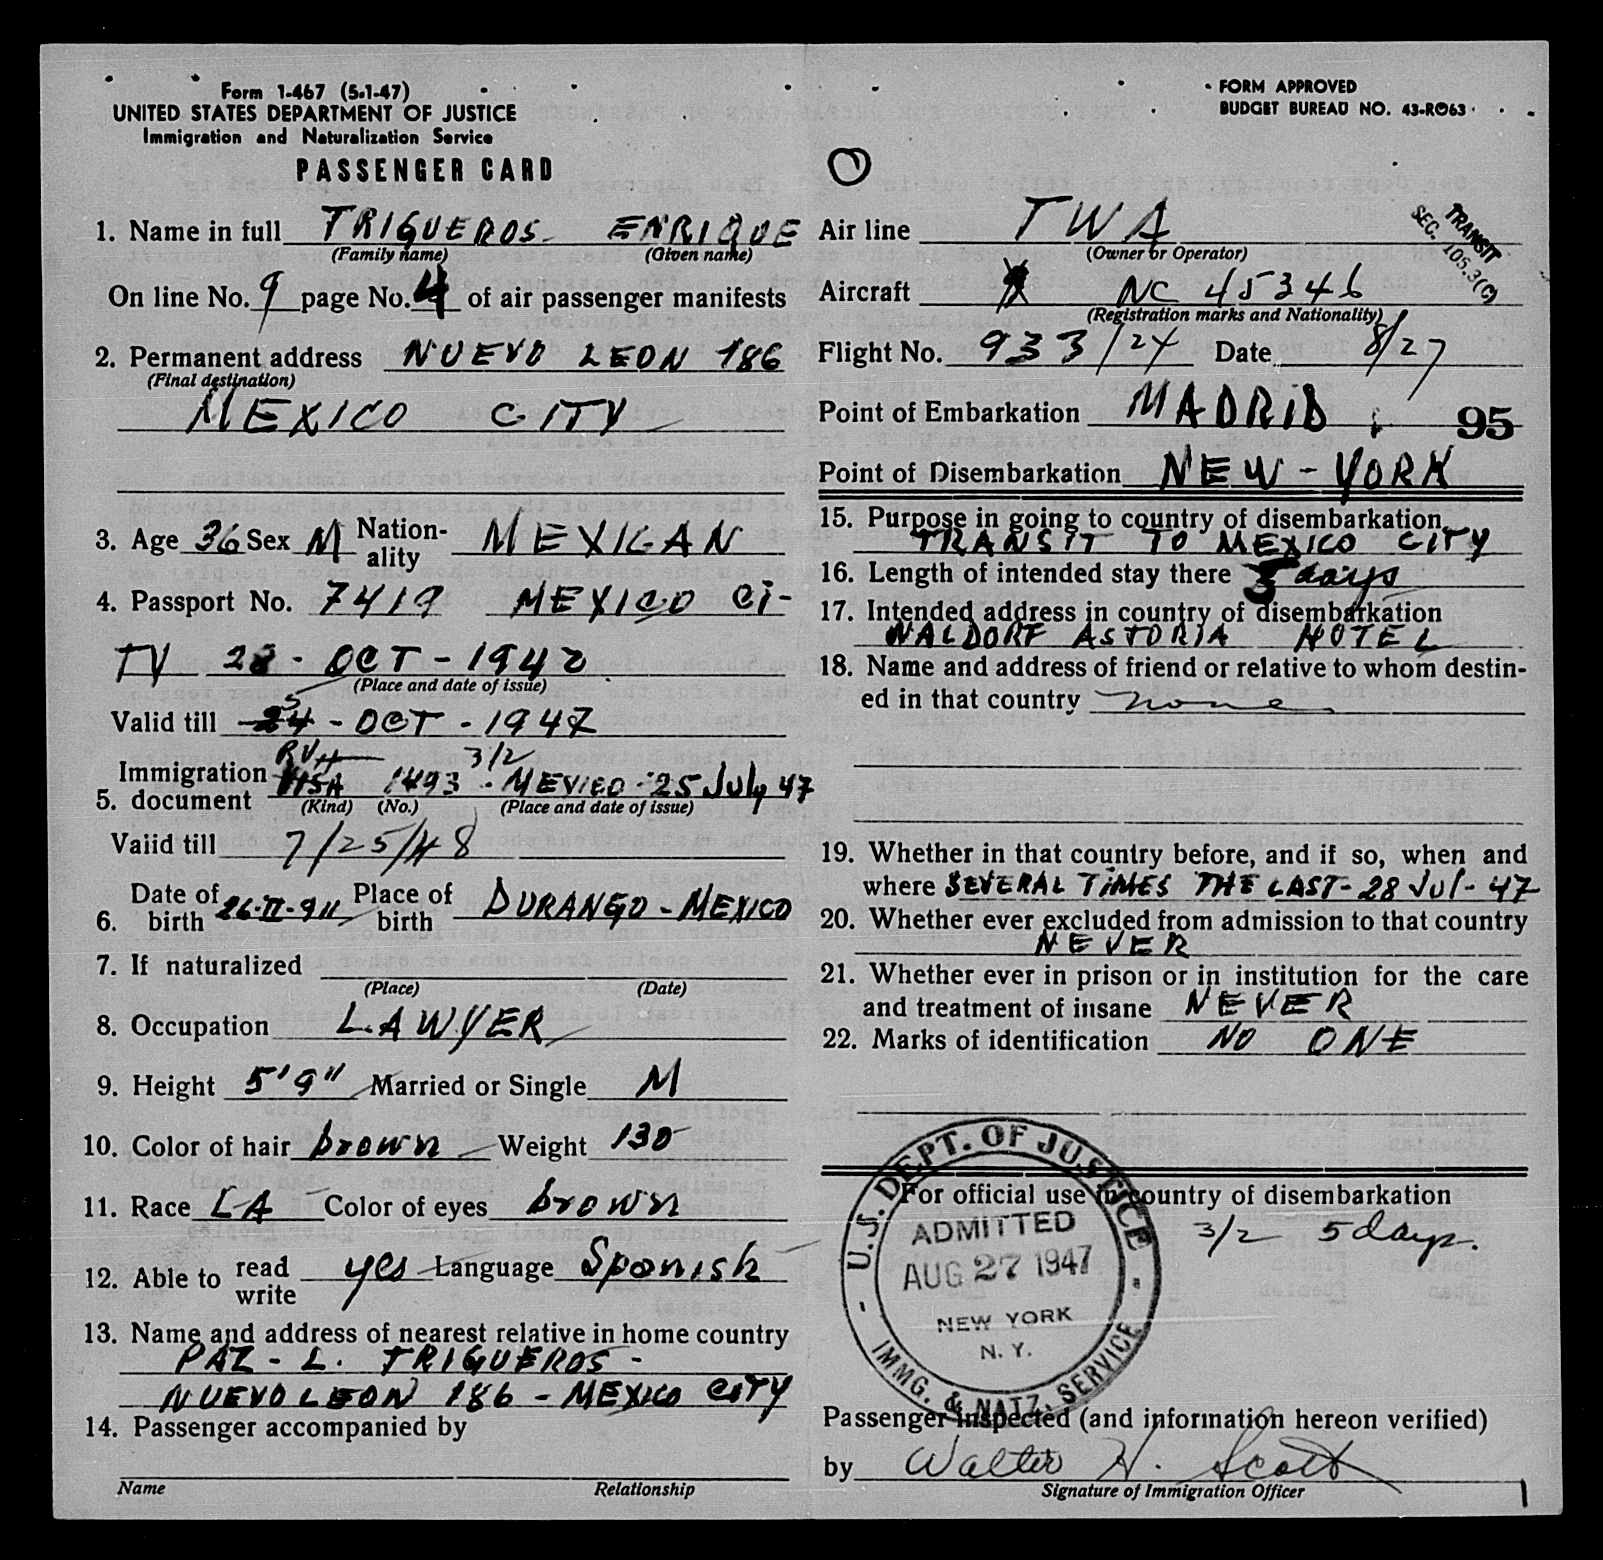 Form 1-467 (5-1-47)
UNITED STATES DEPARTMENT OF JUSTICE
Immigration and Naturalization Service
PASSENGER CARD
1. Name in full TRIGUEROS- ENRIQUE
(Family name) (Given name)
On line No. 9 page No. 4 of air passenger manifests
2. Permanent address NUEVO LEON 186
(Final destination)
MEXICO CITY
3. Age 36 Sex M Nation-ality MEXICAN
4. Passport No. 7419 MEXICO CI-
TY 28 - OCT - 1942
(Place and date of issue)
Valid till 24 - OCT - 1947
5
RVH 3/2
5. Immigration document VISA 1493 - MEXICO - 25 July 47
(Kind) (No.) (Place and date of issue)
Valid till 7/25/48
6. Date of birth 26-II-911 Place of birth DURANGO - MEXICO
7. If naturalized
(Place) (Date)
8. Occupation LAWYER
9. Height 5'9" Married or Single M
10. Color of hair brown Weight 130
11. Race LA Color of eyes brown
12. Able to read write yes Language Sponish
13. Name and address of nearest relative in home country
PAZ - L. TRIGUEROS -
NUEVO LEON 186 - MEXICO CITY
14. Passenger accompanied by
Name Relationship
FORM APPROVED
BUDGET BUREAU NO. 43-R063
Air line TWA
(Owner or Operator)
TRANSIT
SEC. 105.3(C)
Aircraft NC 45346
(Registration marks and Nationality)
Flight No. 933/24 Date 8/27
Point of Embarkation MADRID 95
Point of Disembarkation NEW - YORK
15. Purpose in going to country of disembarkation
TRANSIT TO MEXICO CITY
16. Length of intended stay there days
17. Intended address in country of disembarkation
WALDORF ASTORIA HOTEL
18. Name and address of friend or relative to whom destin-
ed in that country none
19. Whether in that country before, and if so, when and
where SEVERAL TIMES THE LAST- 28 JUl- 47
20. Whether ever excluded from admission to that country
NEVER
21. Whether ever in prison or in institution for the care
and treatment of insane NEVER
22. Marks of identification NO ONE
For official use in country of disembarkation
3/2 5 days.
U.S. DEPT. OF JUSTICE
ADMITTED
AUG 27 1947
NEW YORK
N. Y.
IMMG. & NATZ. SERVICE
Passenger inspected (and information hereon verified)
by Walter H. Scott
Signature of Immigration Officer